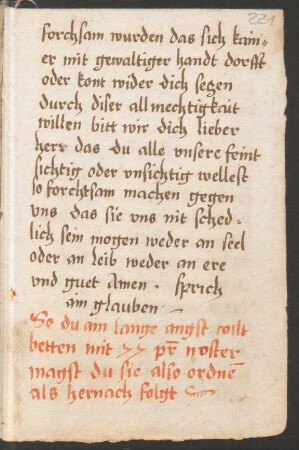 221
forchsam wurden das sich kain=
er mit gewaltiger handt dorfft
oder kont wider dich seʒen
durch diser allmechtigkait
willen bitt wir dich lieber
herr das du alle vnsere feint
sichtig oder vnsichtig wellest
so forchtsam machen gegen
vns das sie vns nit sched=
lich sein mogen weder an seel
oder an leib weder an ere
vnd guet Amen . sprich
ain glauben
So du ain lange angst wilt
betten mit yy pr̄ noster
magst du sie also ordnē
als hernach folgt